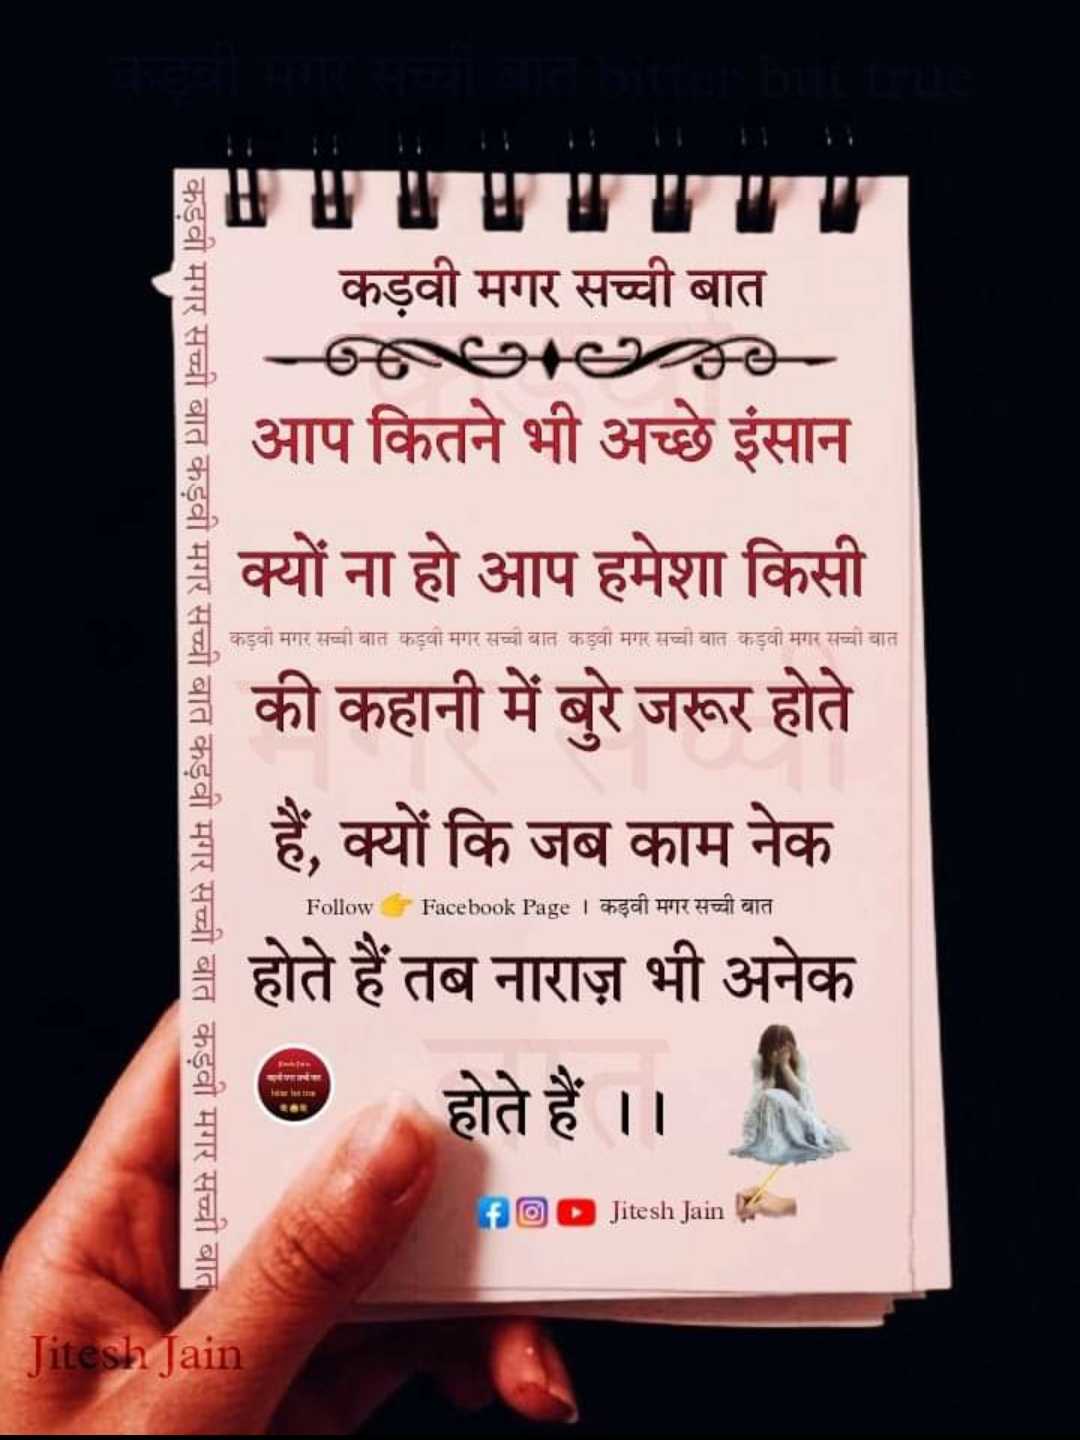 कड़वी मगर सच्ची बात bitter but true
कड़वी मगर सच्ची बात
आप कितने भी अच्छे इंसान
क्यों ना हो आप हमेशा किसी
कड़वी मगर सच्ची बात कड़वी मगर सच्ची बात कड़वी मगर सच्ची बात कड़वी मगर सच्ची बात
की कहानी में बुरे जरूर होते
हैं, क्यों कि जब काम नेक
Follow 👉 Facebook Page । कड़वी मगर सच्ची बात
होते हैं तब नाराज़ भी अनेक
होते हैं ।।
Jitesh Jain
कड़वी मगर सच्ची बात कड़वी मगर सच्ची बात कड़वी मगर सच्ची बात कड़वी मगर सच्ची बात
कड़वी
मगर सच्ची
बात
Jitesh Jain